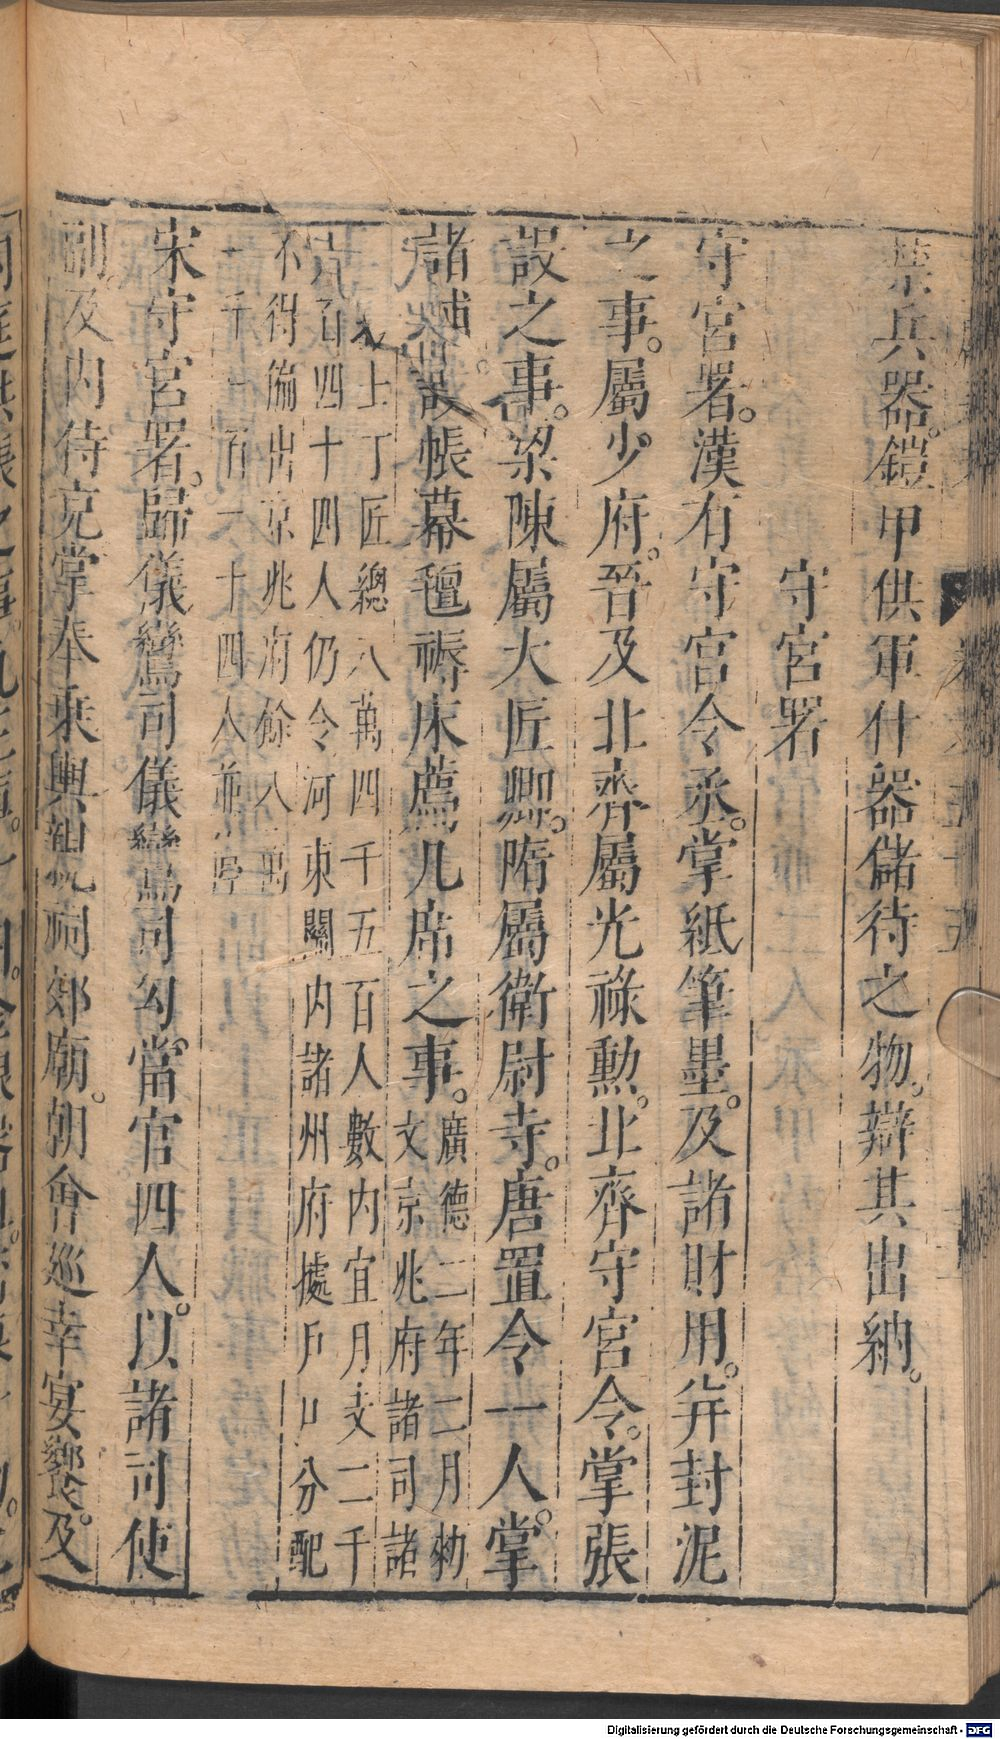 禁兵器鎧甲供軍什器儲待之物。辯其出納。
守宮署
守宮署。漢有守宮令丞。掌紙筆墨。及諸財用。并封泥
之事。屬少府。晉及北齊屬光祿勲。北齊守宮令。掌張
設之事。梁陳屬大匠卿。隋屬衛尉寺。唐置令一人。掌
諸 設帳幕氊褥床薦几席之事。
廣德二年二月勑
文京兆府諸司諸
上丁匠總八萬四千五百人數內宜月支二千
九百四十四人仍令河東關内諸州府據户口分配
不得偏出京兆府餘八萬
一千一百一十四人並停
宋守宮署。歸儀鸞司儀鸞司勾當官四人。以諸司使
副及内侍充掌奉乘輿親祀祠郊廟。朝會巡幸宴饗。及
Digitalisierung gefördert durch die Deutsche Forschungsgemeinschaft - DFG